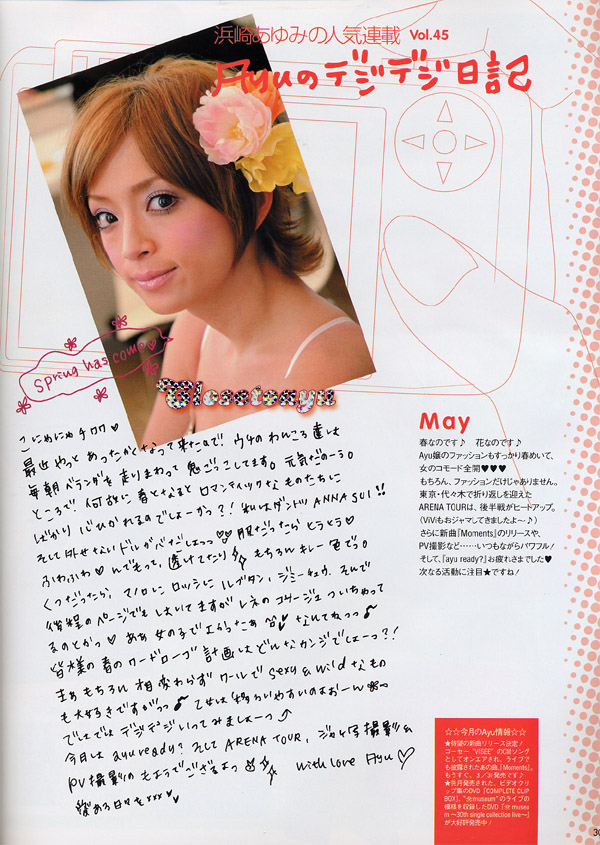 浜崎あゆみの人気連載 Vol.45
Ayuのデジデジ日記
Spring has come
Closetoayu
こにゃにゃチワワ♡
最近やっと あったかくなって来たので! ウチのわんころ達は
毎朝ベランダを走りまわって 鬼ごっこしてます。元気だのーう。
ところで! 何故に春となると ロマンティックなものたちに
ばかり 心ひかれるのでしょーかっ?! 私はダンゼンANNA SUI!!
そして外せない ドルガバでしょっっ♡♡ 服だったら ヒラヒラ♡
ふわふわ♡ んでもって、透けてたり もちろん キレー色でっ。
くつだったら、マノロに ロッシに ルブタン、ジミーチュウ、そんで
後程のページでも しょいてますが レネのコサージュ ついちゃって
るのとかっ♡ あぁ 女の子で よかったぁ なんてねっっ
皆様の春のワードローブ 計画は どんなカンジでしょーっ?!
まぁもちろん 相変わらず クールで sexy & wild なもの
も大好きですがっっ 乙女は移ろいやすいのよおーん
でしてでは デジデジいってみましょーっ
今月は ayu ready? そして ARENA TOUR、ジャケ写撮影 &
PV撮影のもようでございますっ
with love Ayu♡
愛ある日々をxxx♡
May
春なのです♪　花なのです♪
Ayu嬢のファッションもすっかり春めいて、
女のコモード全開♥♥♥
もちろん、ファッションだけじゃありません。
東京・代々木で折り返しを迎えた
ARENA TOURは、後半戦がヒートアップ。
(ViViもおジャマしてきましたよ〜♪)
さらに新曲『Moments』のリリースや、
PV撮影など……いつもながらパワフル!
そして、『ayu ready?』お疲れさまでした♥
次なる活動に注目★ですね!
☆☆今月のAyu情報☆☆
★待望の新曲リリース決定!
コーセー “VISEE” のCMソング
としてオンエアされ、ライブで
も披露されたあの曲、『Moments』。
もうすぐ、3／31発売です♪
★先月発売された、ビデオクリ
ップ集のDVD「COMPLETE CLIP
BOX」、“Ⓐmuseum”のライブの
模様を収録したDVD「Ⓐmuseu
m 〜30th single collection live〜」
が大好評発売中!